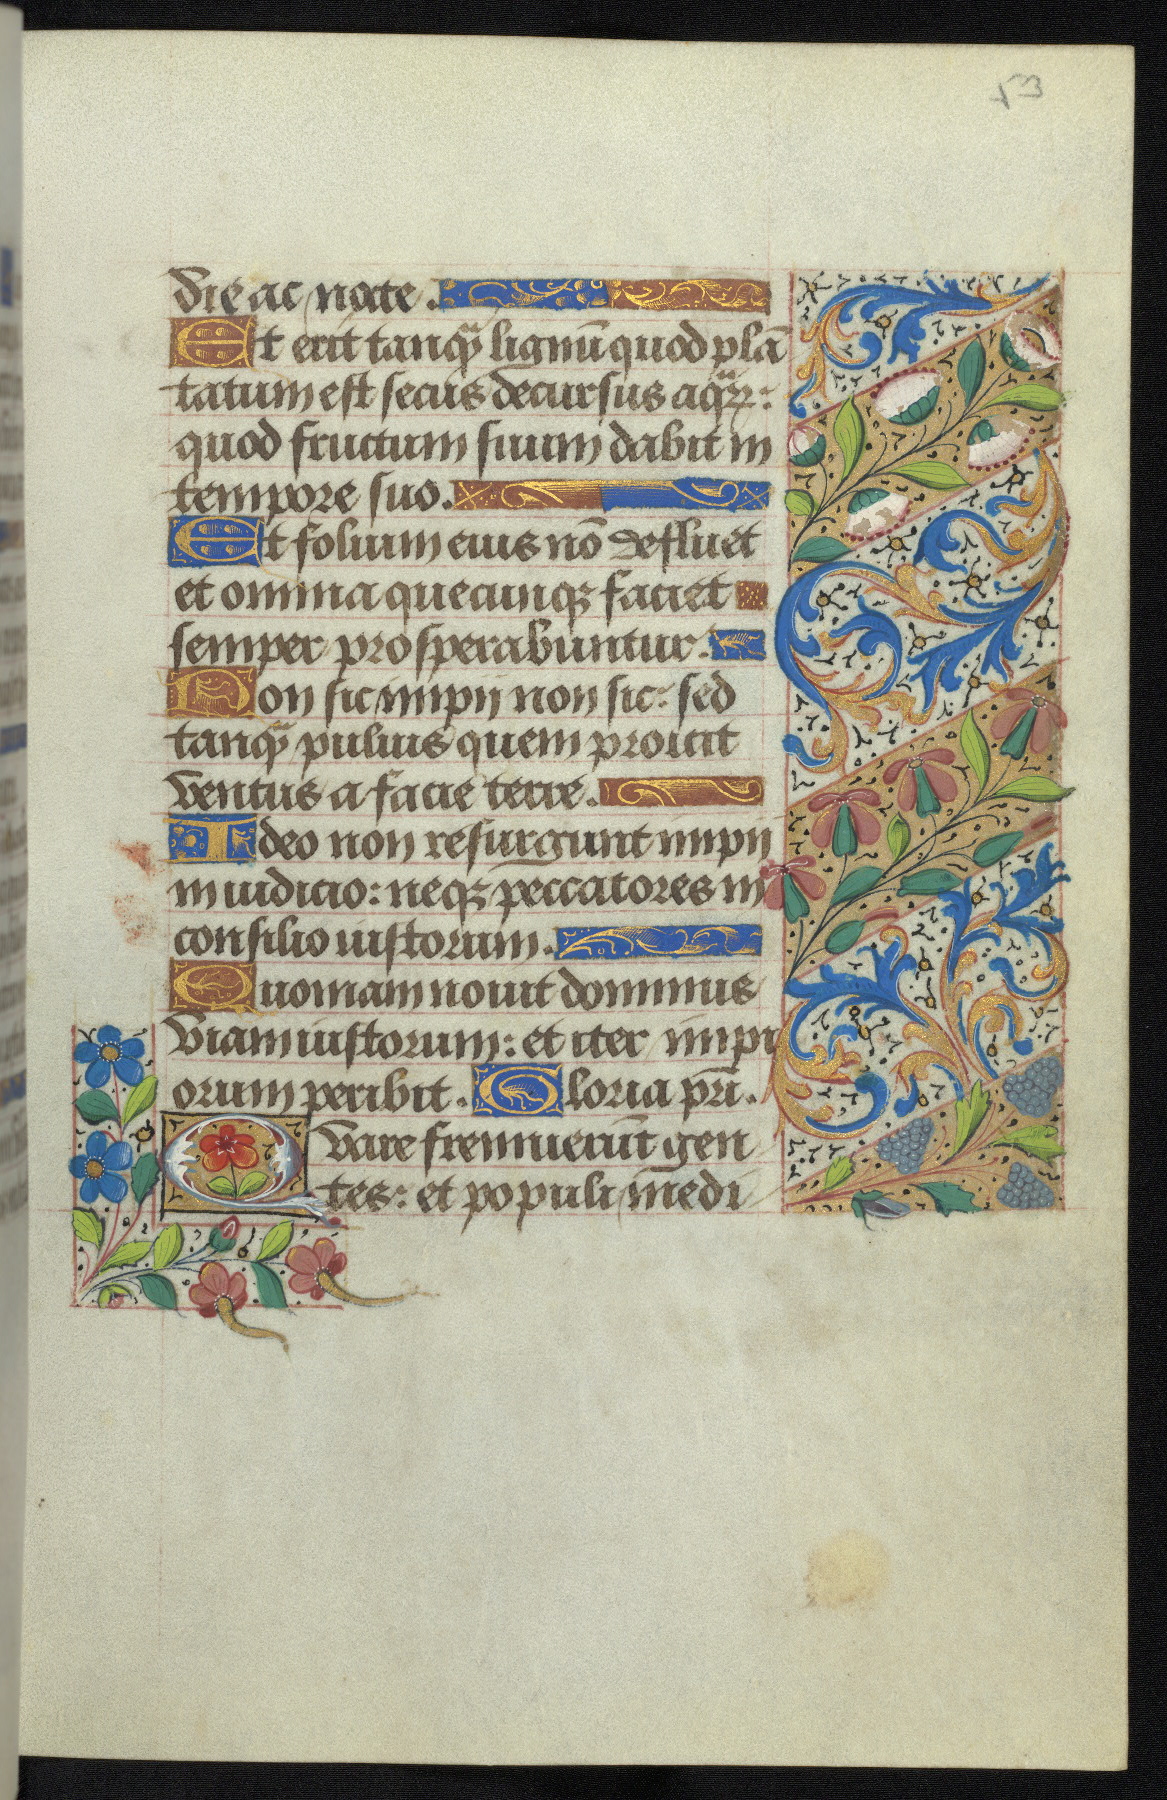 53
die ac nocte.
Et erit tanqᷓ lignū quod plā
tatum est secus decursus aqᷓꝝ:
quod fructum suum dabit in
tempore suo.
Et folium eius nō defluet
et omnia quecunqꝫ faciet
semper prosperabuntur.
Non sic impij non sic: sed
tanqᷓ puluis quem proicit
ventus a facie terre.
Ideo non resurgunt impij
in iudicio: neqꝫ peccatores in
consilio iustorum.
Quoniam nouit dominus
viam iustorum: et iter impi
orum peribit. Gloria pr̄i.
Quare fremuerūt gen
tes: et populi medi